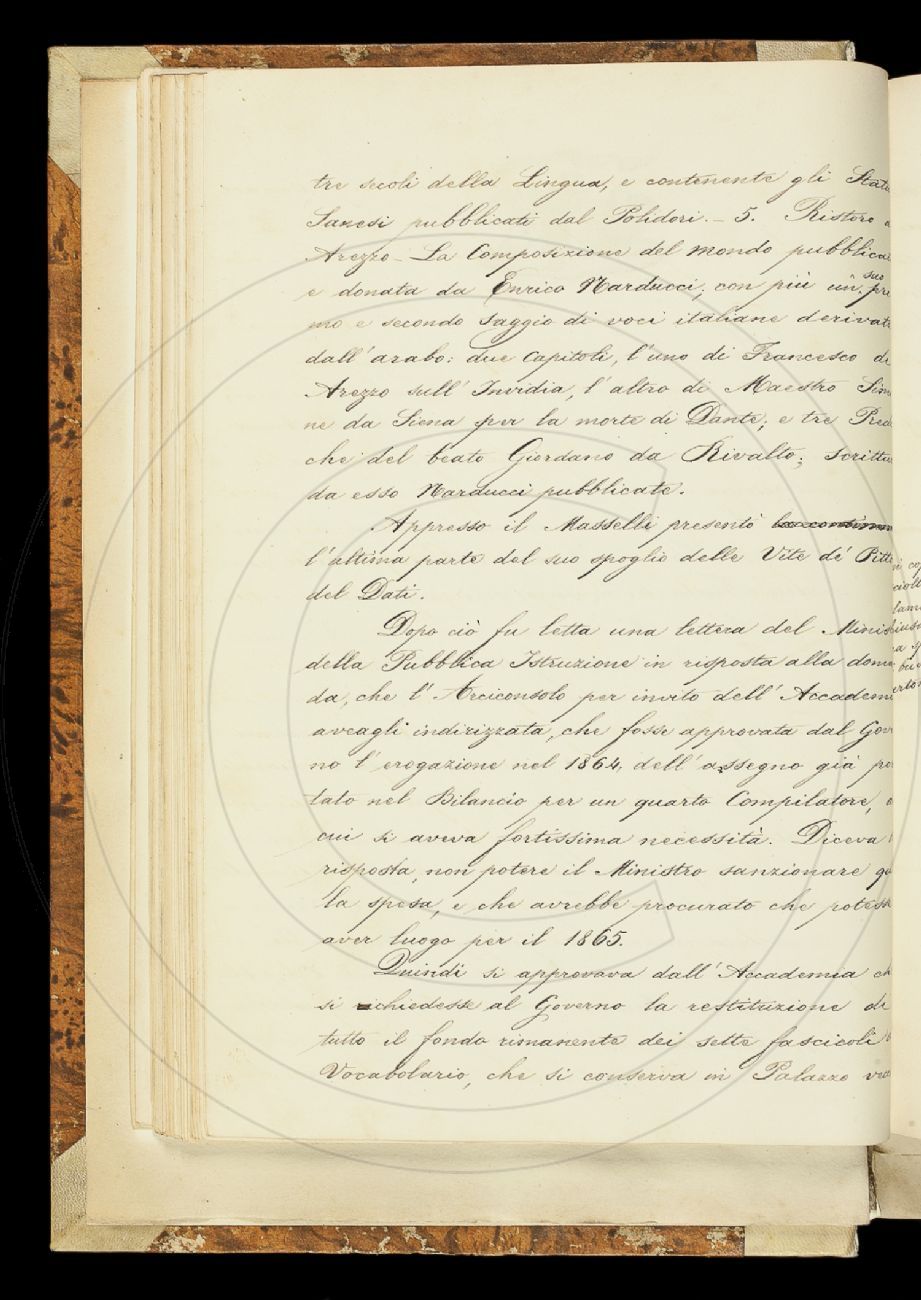 tre secoli della Lingua, e contenente gli Statu
Sanesi pubblicati dal Polidori. – 5. Ristoro d
Arezzo – La Composizione del mondo pubblica
suo
e donata da Enrico Narducci; con più un pri
mo e secondo Saggio di voci italiane derivate
dall' arabo: due Capitoli, l'uno di Francesco di
Arezzo sull' Invidia, l' altro di Maestro Simo
ne da Siena per la morte di Dante; e tre Pred
che del beato Giordano da Rivalto; scrittu
da esso Narducci pubblicate.
Appresso il Masselli presentò
l' ultima parte del suo spoglio delle Vite de' Pitto
del Dati.
Dopo ciò fu letta una lettera del Minist
della Pubblica Istruzione in risposta alla doman
da, che l' Arciconsolo per invito dell' Accademi
aveagli indirizzata, che fosse approvata dal Gover
no l' erogazione nel 1864, dell' assegno già por
tato nel Bilancio per un quarto Compilatore, d
cui si aveva fortissima necessità. Diceva
risposta, non potere il Ministro sanzionare qu
la spesa, e che avrebbe procurato che potesse
aver luogo per il 1865.
Quindi si approvava dall' Accademia ch
si richiedesse al Governo la restituzione di
tutto il fondo rimanente dei sette fascicoli
Vocabolario, che si conserva in Palazzo vec